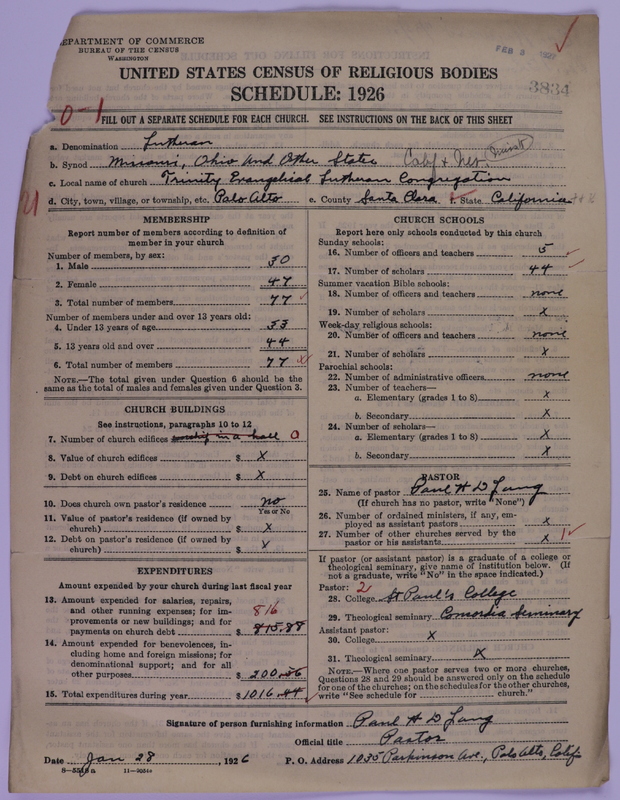 DEPARTMENT OF COMMERCE
BUREAU OF THE CENSUS
WASHINGTON
FEB 3 1927
UNITED STATES CENSUS OF RELIGIOUS BODIES
SCHEDULE: 1926
3834
0-1
FILL OUT A SEPARATE SCHEDULE FOR EACH CHURCH. SEE INSTRUCTIONS ON THE BACK OF THIS SHEET
a. Denomination Lutheran
b. Synod Missouri, Ohio and Other States Calif & Nev. District
c. Local name of church Trinity Evangelical Lutheran Congregation
d. City, town, village, or township, etc. Palo Alto e. County Santa Clara f. State California
MEMBERSHIP
Report number of members according to definition of
member in your church
Number of members, by sex:
1. Male 30
2. Female 47
3. Total number of members 77
Number of members under and over 13 years old:
4. Under 13 years of age 33
5. 13 years old and over 44
6. Total number of members 77
NOTE.—The total given under Question 6 should be the
same as the total of males and females given under Question 3.
CHURCH BUILDINGS
See instructions, paragraphs 10 to 12
7. Number of church edifices worship in a hall 0
8. Value of church edifices $ x
9. Debt on church edifices $ x
10. Does church own pastor's residence no
Yes or No
11. Value of pastor's residence (if owned by
church) $ x
12. Debt on pastor's residence (if owned by
church) $ x
EXPENDITURES
Amount expended by your church during last fiscal year
13. Amount expended for salaries, repairs,
and other running expenses; for im-
provements or new buildings; and for
payments on church debt $ 815.88 816
14. Amount expended for benevolences, in-
cluding home and foreign missions; for
denominational support; and for all
other purposes $ 200.56
15. Total expenditures during year $ 1016.44
CHURCH SCHOOLS
Report here only schools conducted by this church
Sunday schools:
16. Number of officers and teachers 5
17. Number of scholars 44
Summer vacation Bible schools:
18. Number of officers and teachers none
19. Number of scholars x
Week-day religious schools:
20. Number of officers and teachers none
21. Number of scholars x
Parochial schools:
22. Number of administrative officers none
23. Number of teachers—
a. Elementary (grades 1 to 8) x
b. Secondary x
24. Number of scholars—
a. Elementary (grades 1 to 8) x
b. Secondary x
PASTOR
25. Name of pastor Paul H D Lang
(If church has no pastor, write "None")
26. Number of ordained ministers, if any, em-
ployed as assistant pastors x
27. Number of other churches served by the
pastor or his assistants x 1
If pastor (or assistant pastor) is a graduate of a college or
theological seminary, give name of institution below. (If
not a graduate, write "No" in the space indicated.)
Pastor: 2
28. College St Paul's College
29. Theological seminary Concordia Seminary
Assistant pastor:
30. College x
31. Theological seminary x
NOTE.—Where one pastor serves two or more churches,
Questions 28 and 29 should be answered only on the schedule
for one of the churches; on the schedules for the other churches,
write "See schedule for church."
Signature of person furnishing information Paul H D Lang
Official title Pastor
Date Jan 28, 1926 P. O. Address 1035 Parkinson Ave., Palo Alto, Calif.